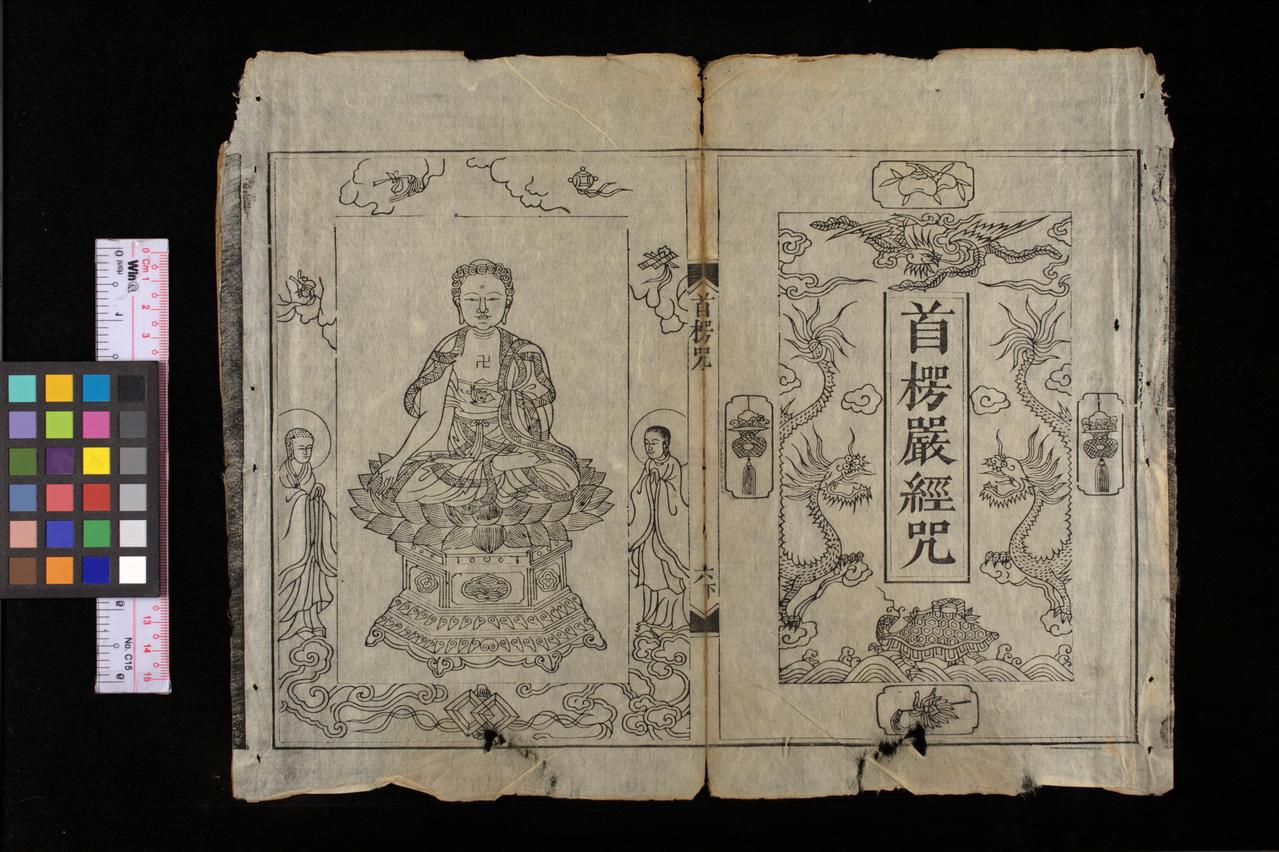 首楞嚴經咒
首楞咒
六下
卍
Cm 1
2
3
13
14
15
No. C15